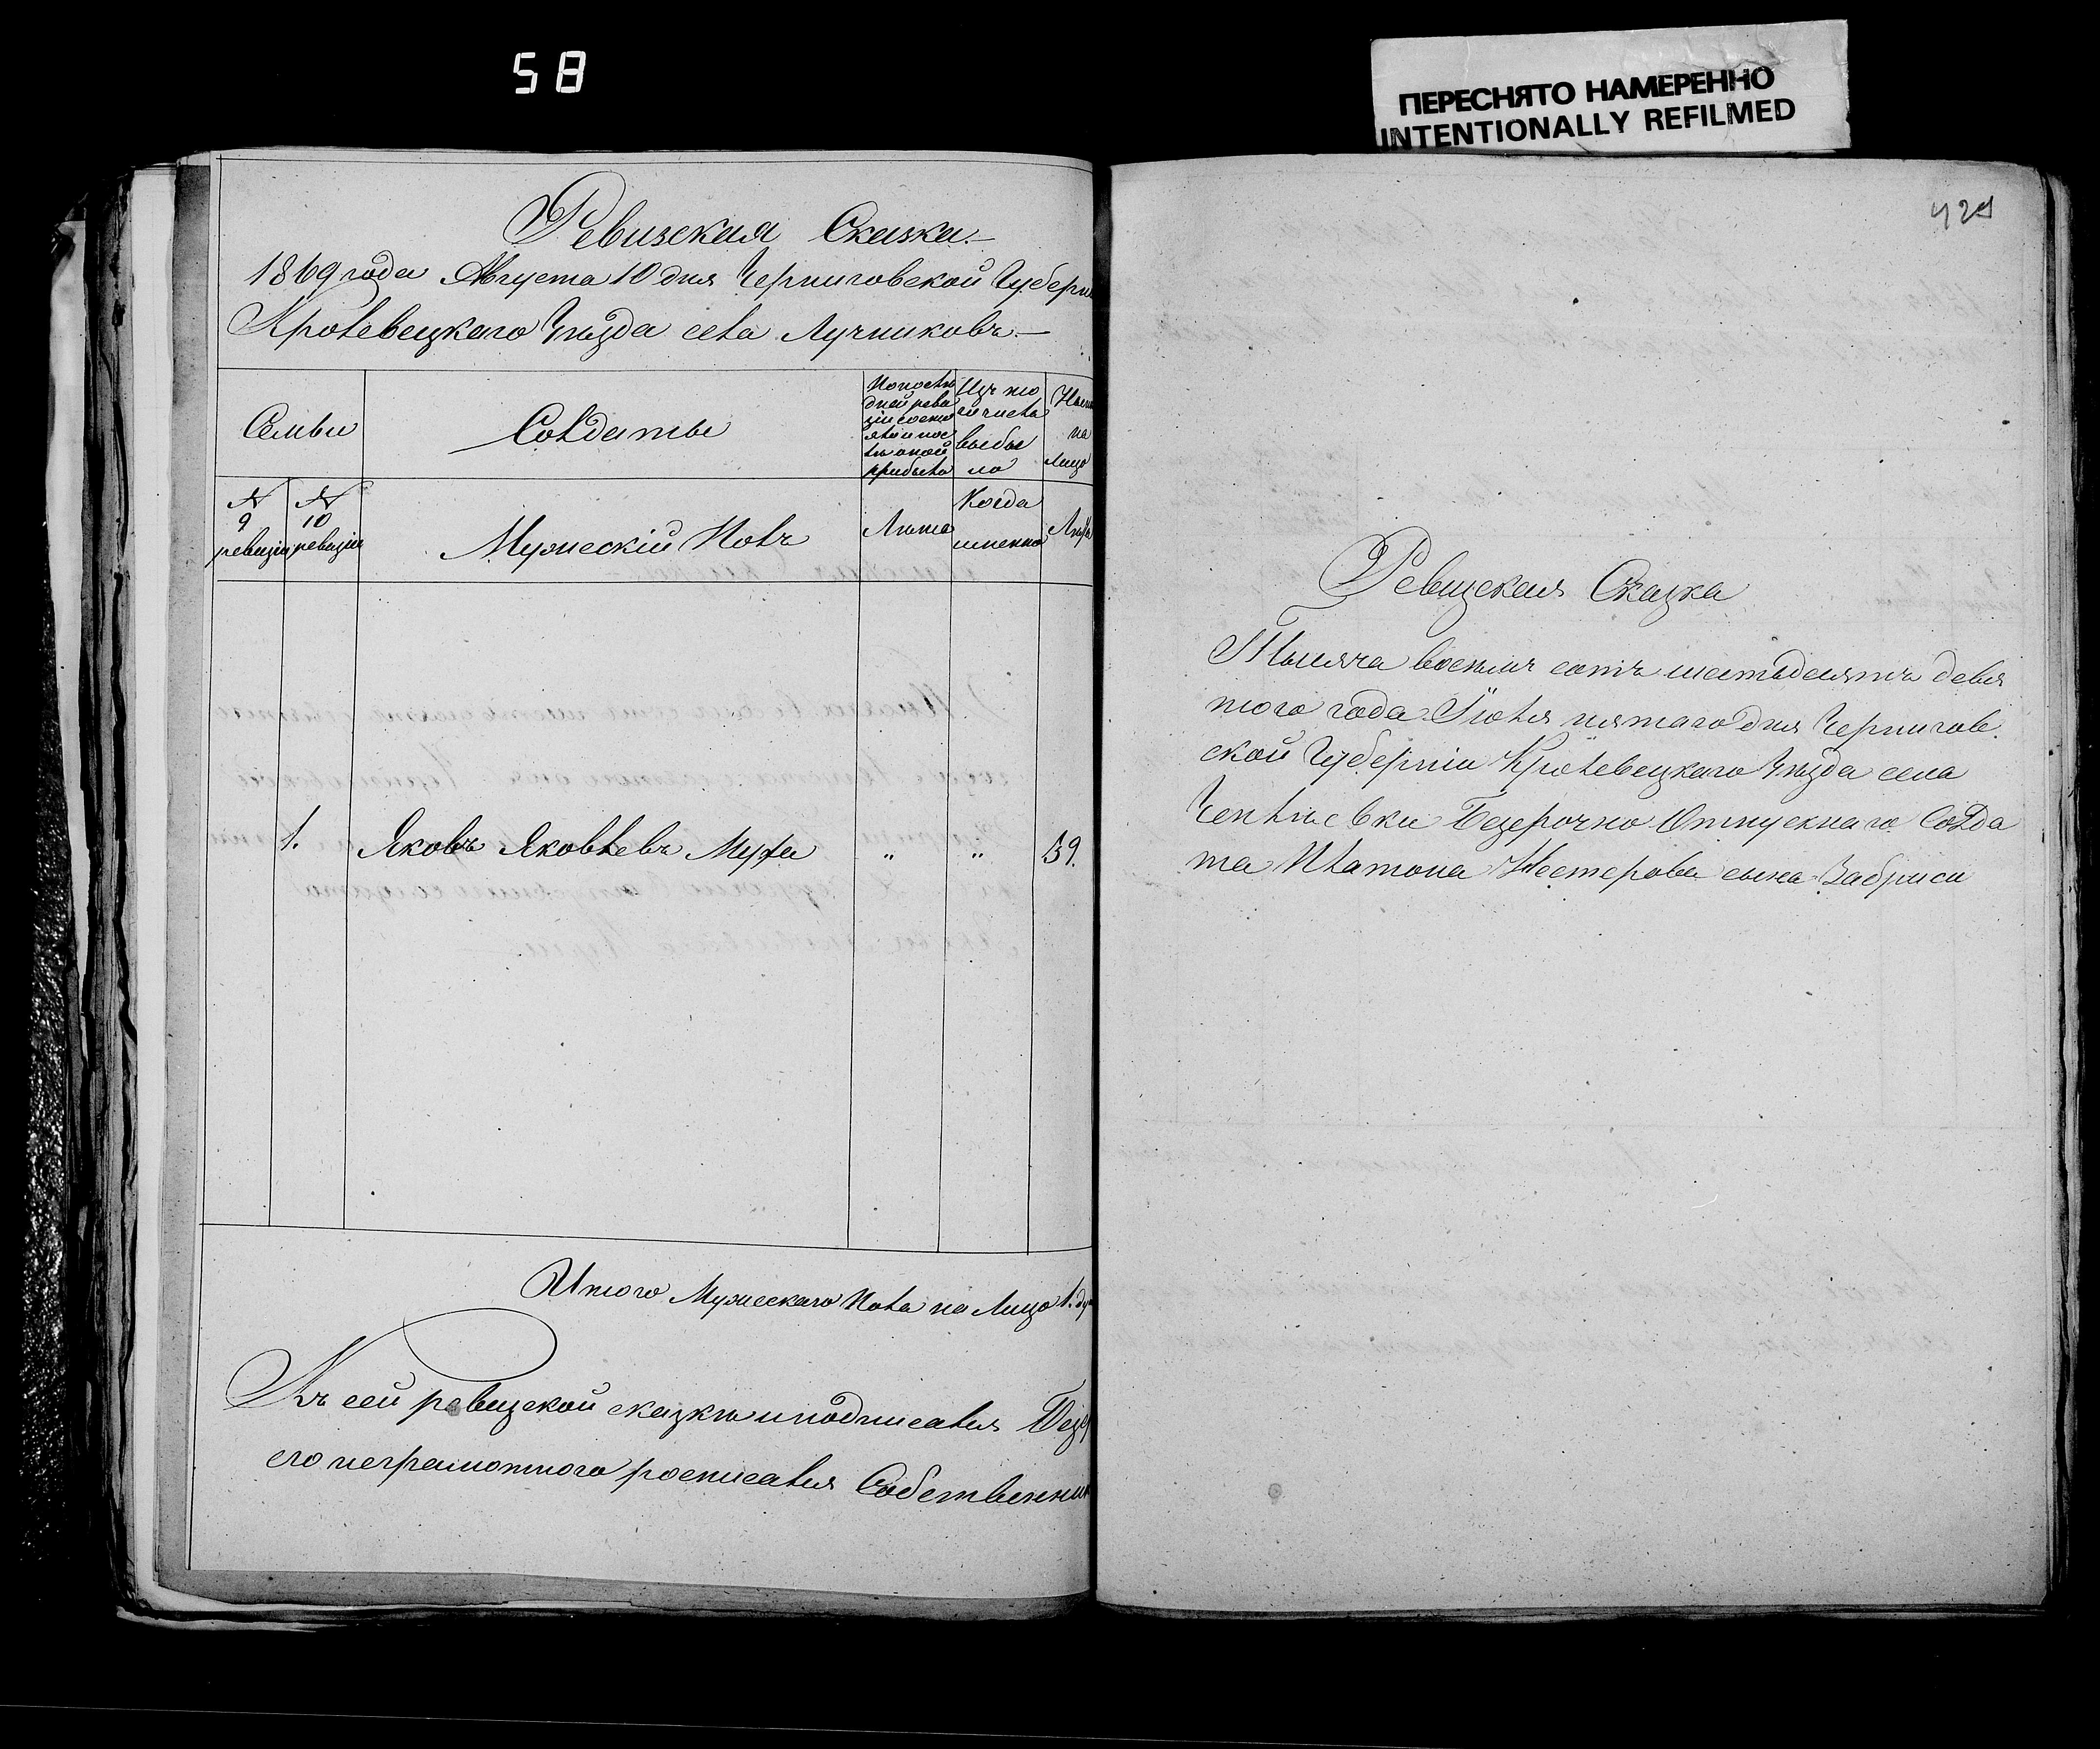 58
ПЕРЕСНЯТО НАМЕРЕННО
INTENTIONALLY REFILMED
Ревизская Сказка.—
1869 года Августа 10 дня Черниговской Губерн
Кролевецкаго Уѣзда села Лучниковъ.—
Семьи
Солдаты
Попослѣ
дней реви
зіи состо
яло и пос
лѣ оной
прибыло
Изъ то
го числа
выбы
ло
Нын
на
лицо
№
9
ревизіи
№
10
ревизіи
Мужескій Полъ
Лѣта
Когда
именно
Лѣта
1. Яковъ Яковлевъ Муха " " 59.
Итого Мужескаго Пола на Лицо 1. ду
Къ сей ревизской сказкѣ и подписался Безс
его неграмотного росписался Собственни
429
Ревизская Сказка
Тысяча восемь сотъ шестьдесятъ девя
того года Іюля пятаго дня Чернигов
ской Губерніи Кролевецкаго Уѣзда села
Чеплѣевки Безсрочно Отпускнаго Солда
та Платона Нестерова сына Забриси